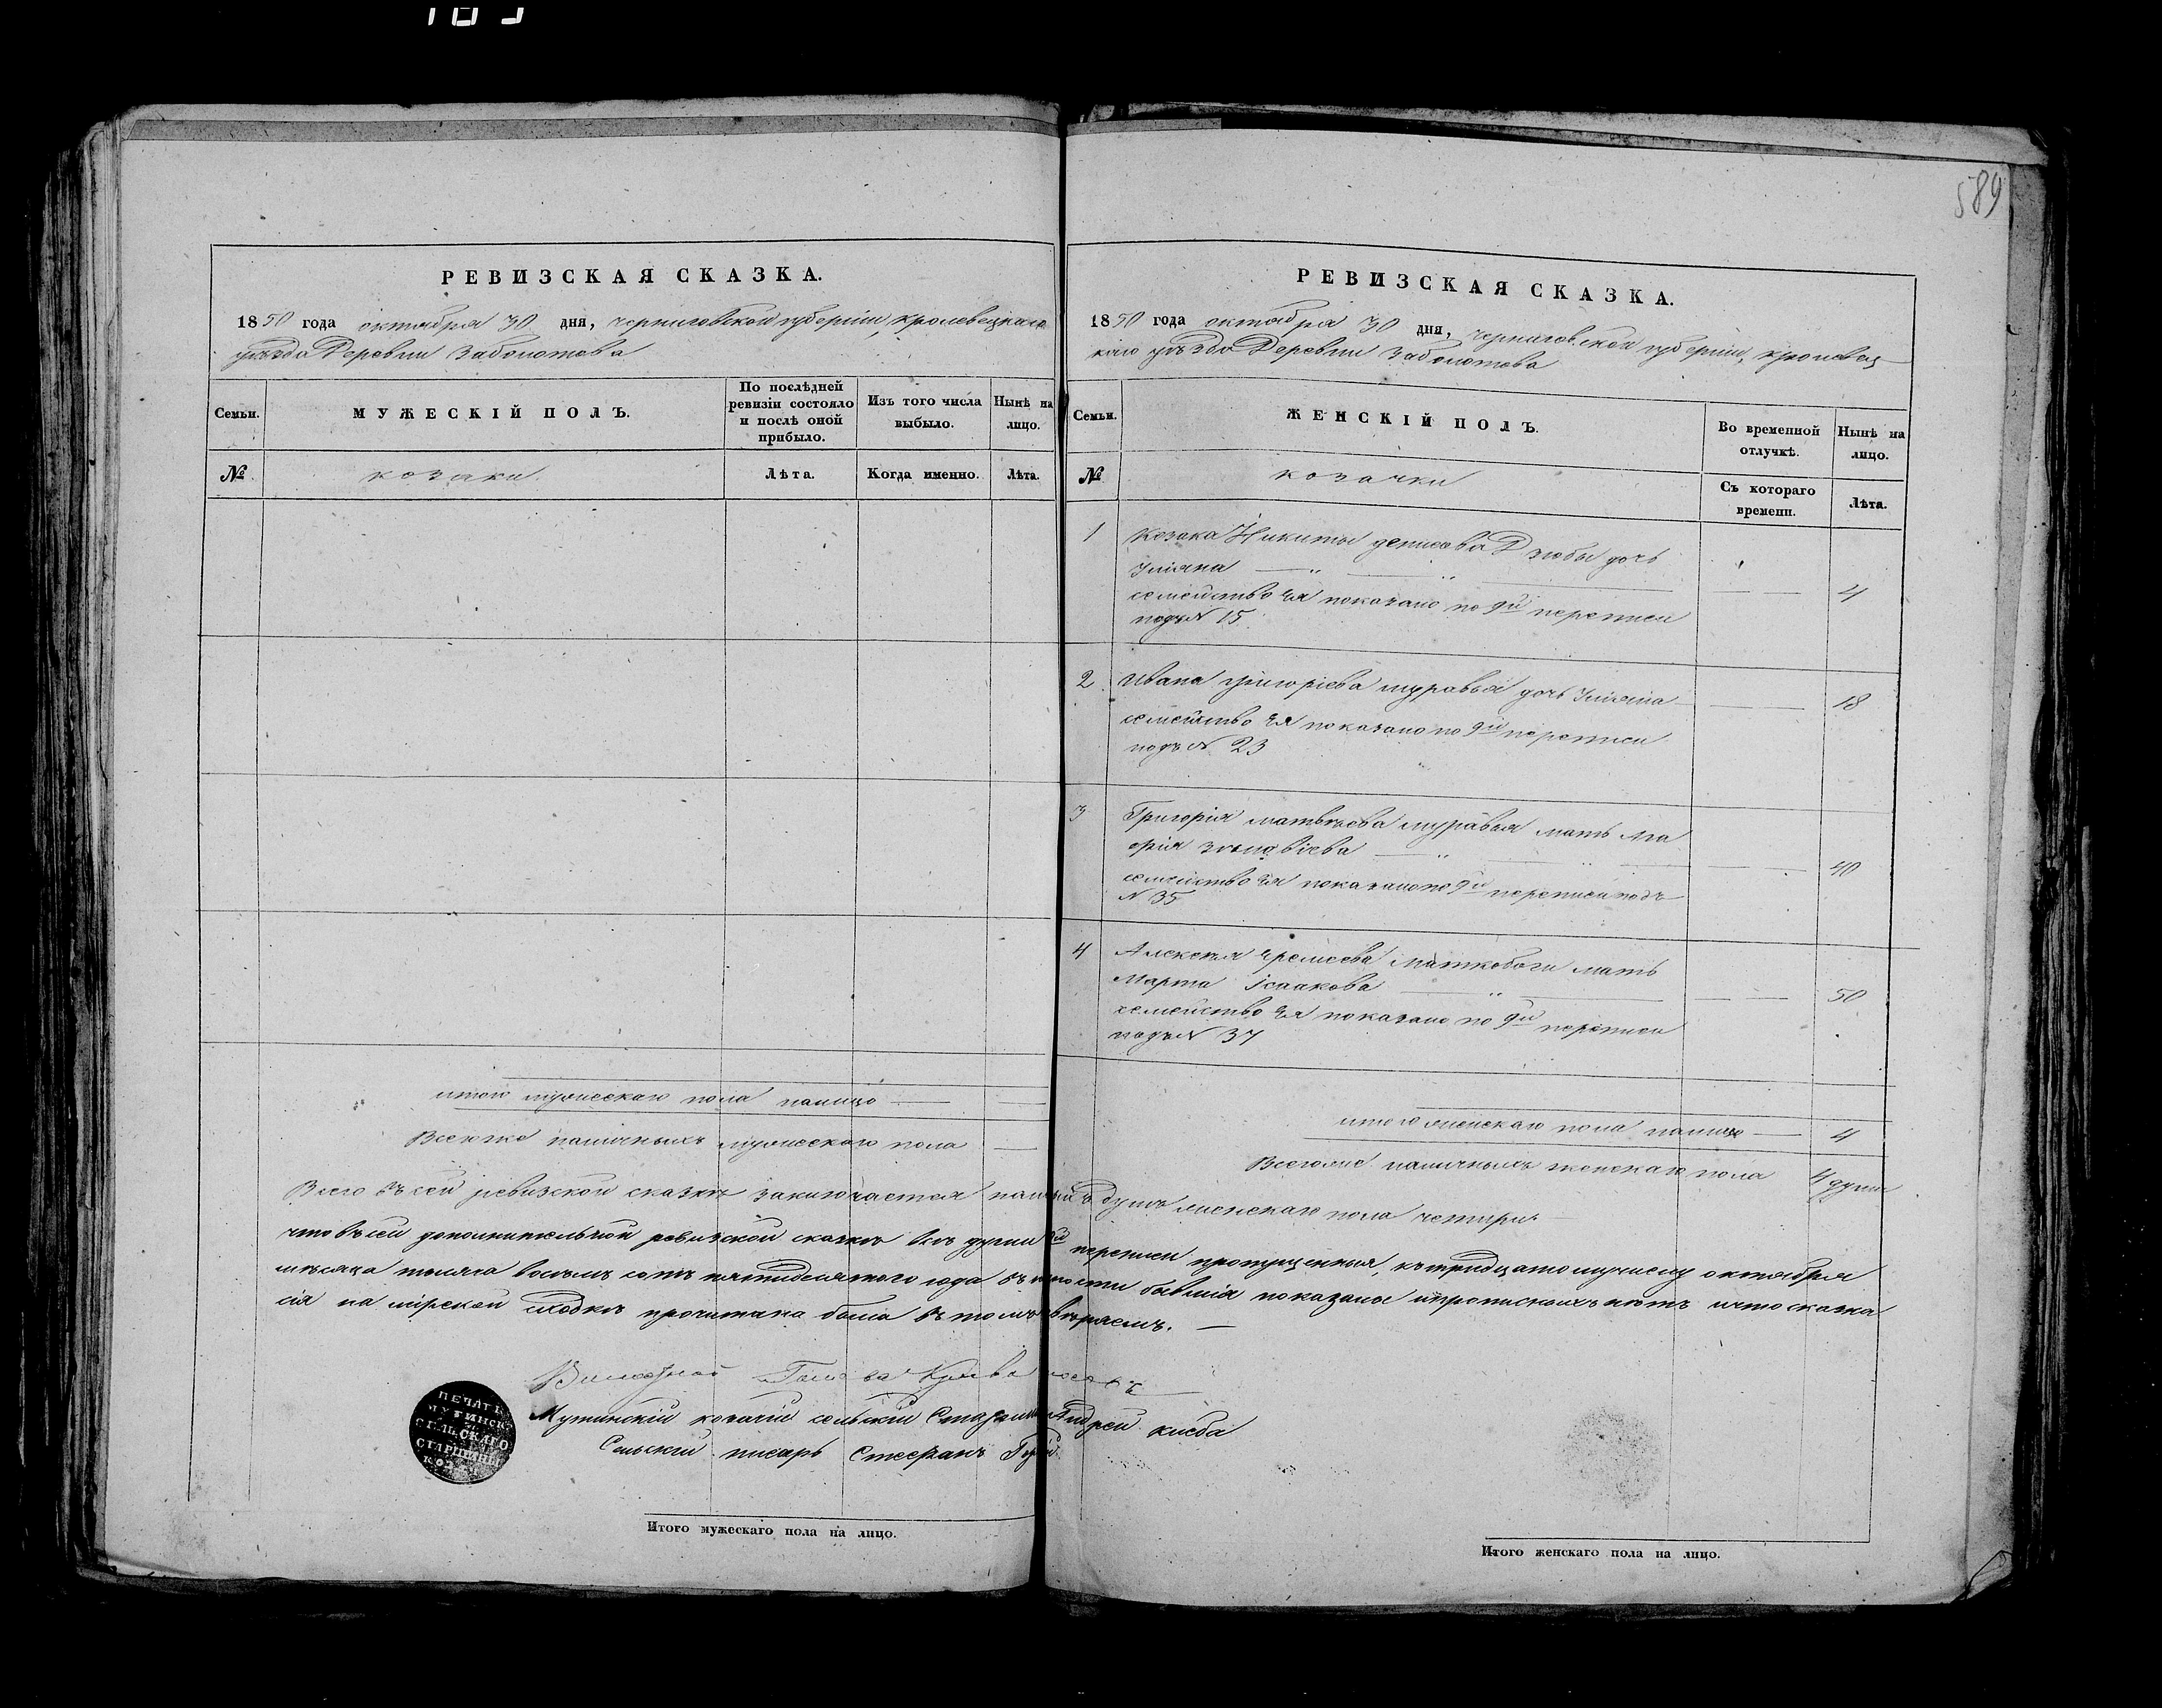 589
РЕВИЗСКАЯ СКАЗКА.
1850 года октября 30 дня, черниговской губерніи, кролевецкаго
уѣзда Деревни Заболотова
Семьи.
МУЖЕСКІЙ ПОЛЪ.
По послѣдней ревизіи состояло и послѣ оной прибыло.
Изъ того числа выбыло.
Нынѣ на лицо.
№
козаки
Лѣта.
Когда именно.
Лѣта.
итого мужескаго пола налицо
Всего же наличныхъ мужескаго пола
РЕВИЗСКАЯ СКАЗКА.
1850 года октября 30 дня, черниговской губерніи, кролевец
каго уѣзда Деревни Заболотова
Семьи.
ЖЕНСКІЙ ПОЛЪ.
Во временной отлучкѣ.
Нынѣ на лицо.
№
козачки
Съ котораго времени.
Лѣта.
1 Козака Никиты денисова Дзюбы дочь
Уліяна
семейство Ея показано по 9й переписи 4
подъ N 15
2 Ивана григоріева муравья дочь Уліяна 18
семейство Ея показано по 9й переписи
подъ N 23
3 Григорія матвѣева муравья мать Ма
рія 40
семейство Ея показано по 9й переписи подъ
N 35
4 Алексѣя Еремеева мать
Марта Ісаакова 50
семейство Ея показано по 9й переписи
подъ N 37
итого женскаго пола налицо 4
Всего же наличныхъ женскаго пола 4 души
Всего въ сей ревизской сказкѣ заключается душъ женскаго пола четыри
что въ сей дополнительной ревизской сказкѣ всѣ души 9й переписи пропущенныя, къ тридцатому числу октября
мѣсяца тысяча восемь сотъ пятидесятого года бывшія показаны и прописныхъ нѣтъ и что сказка
сія на мірской сходкѣ прочитана была въ томъ
Голова
Мутинскій козачій сельскій Андрей
Сельскій писарь Стефанъ
ПЕЧАТЬ
МУТИНСК
СЕЛЬСКАГО
СТАРШИНЫ
КОЗ
Итого мужескаго пола на лицо.
Итого женскаго пола на лицо.